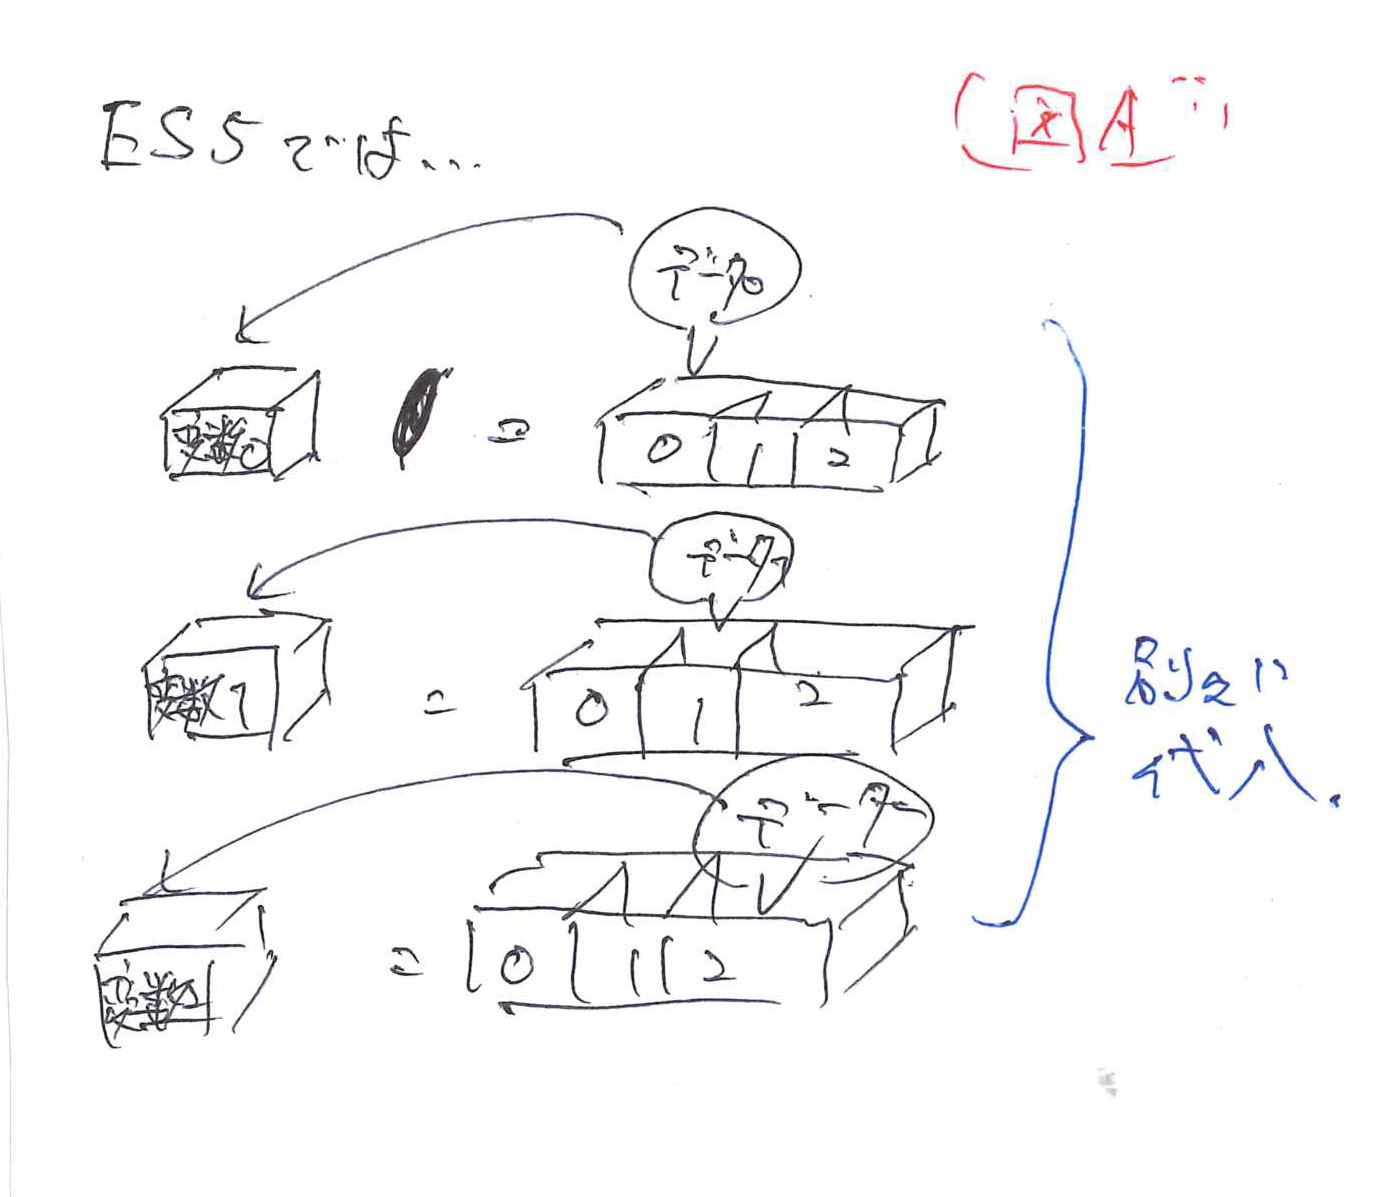 ES5では...
図A
データ0
変数0 = 0 1 2
データ1
変数1 = 0 1 2
データ
変数2 = 0 1 2
別々に
代入.